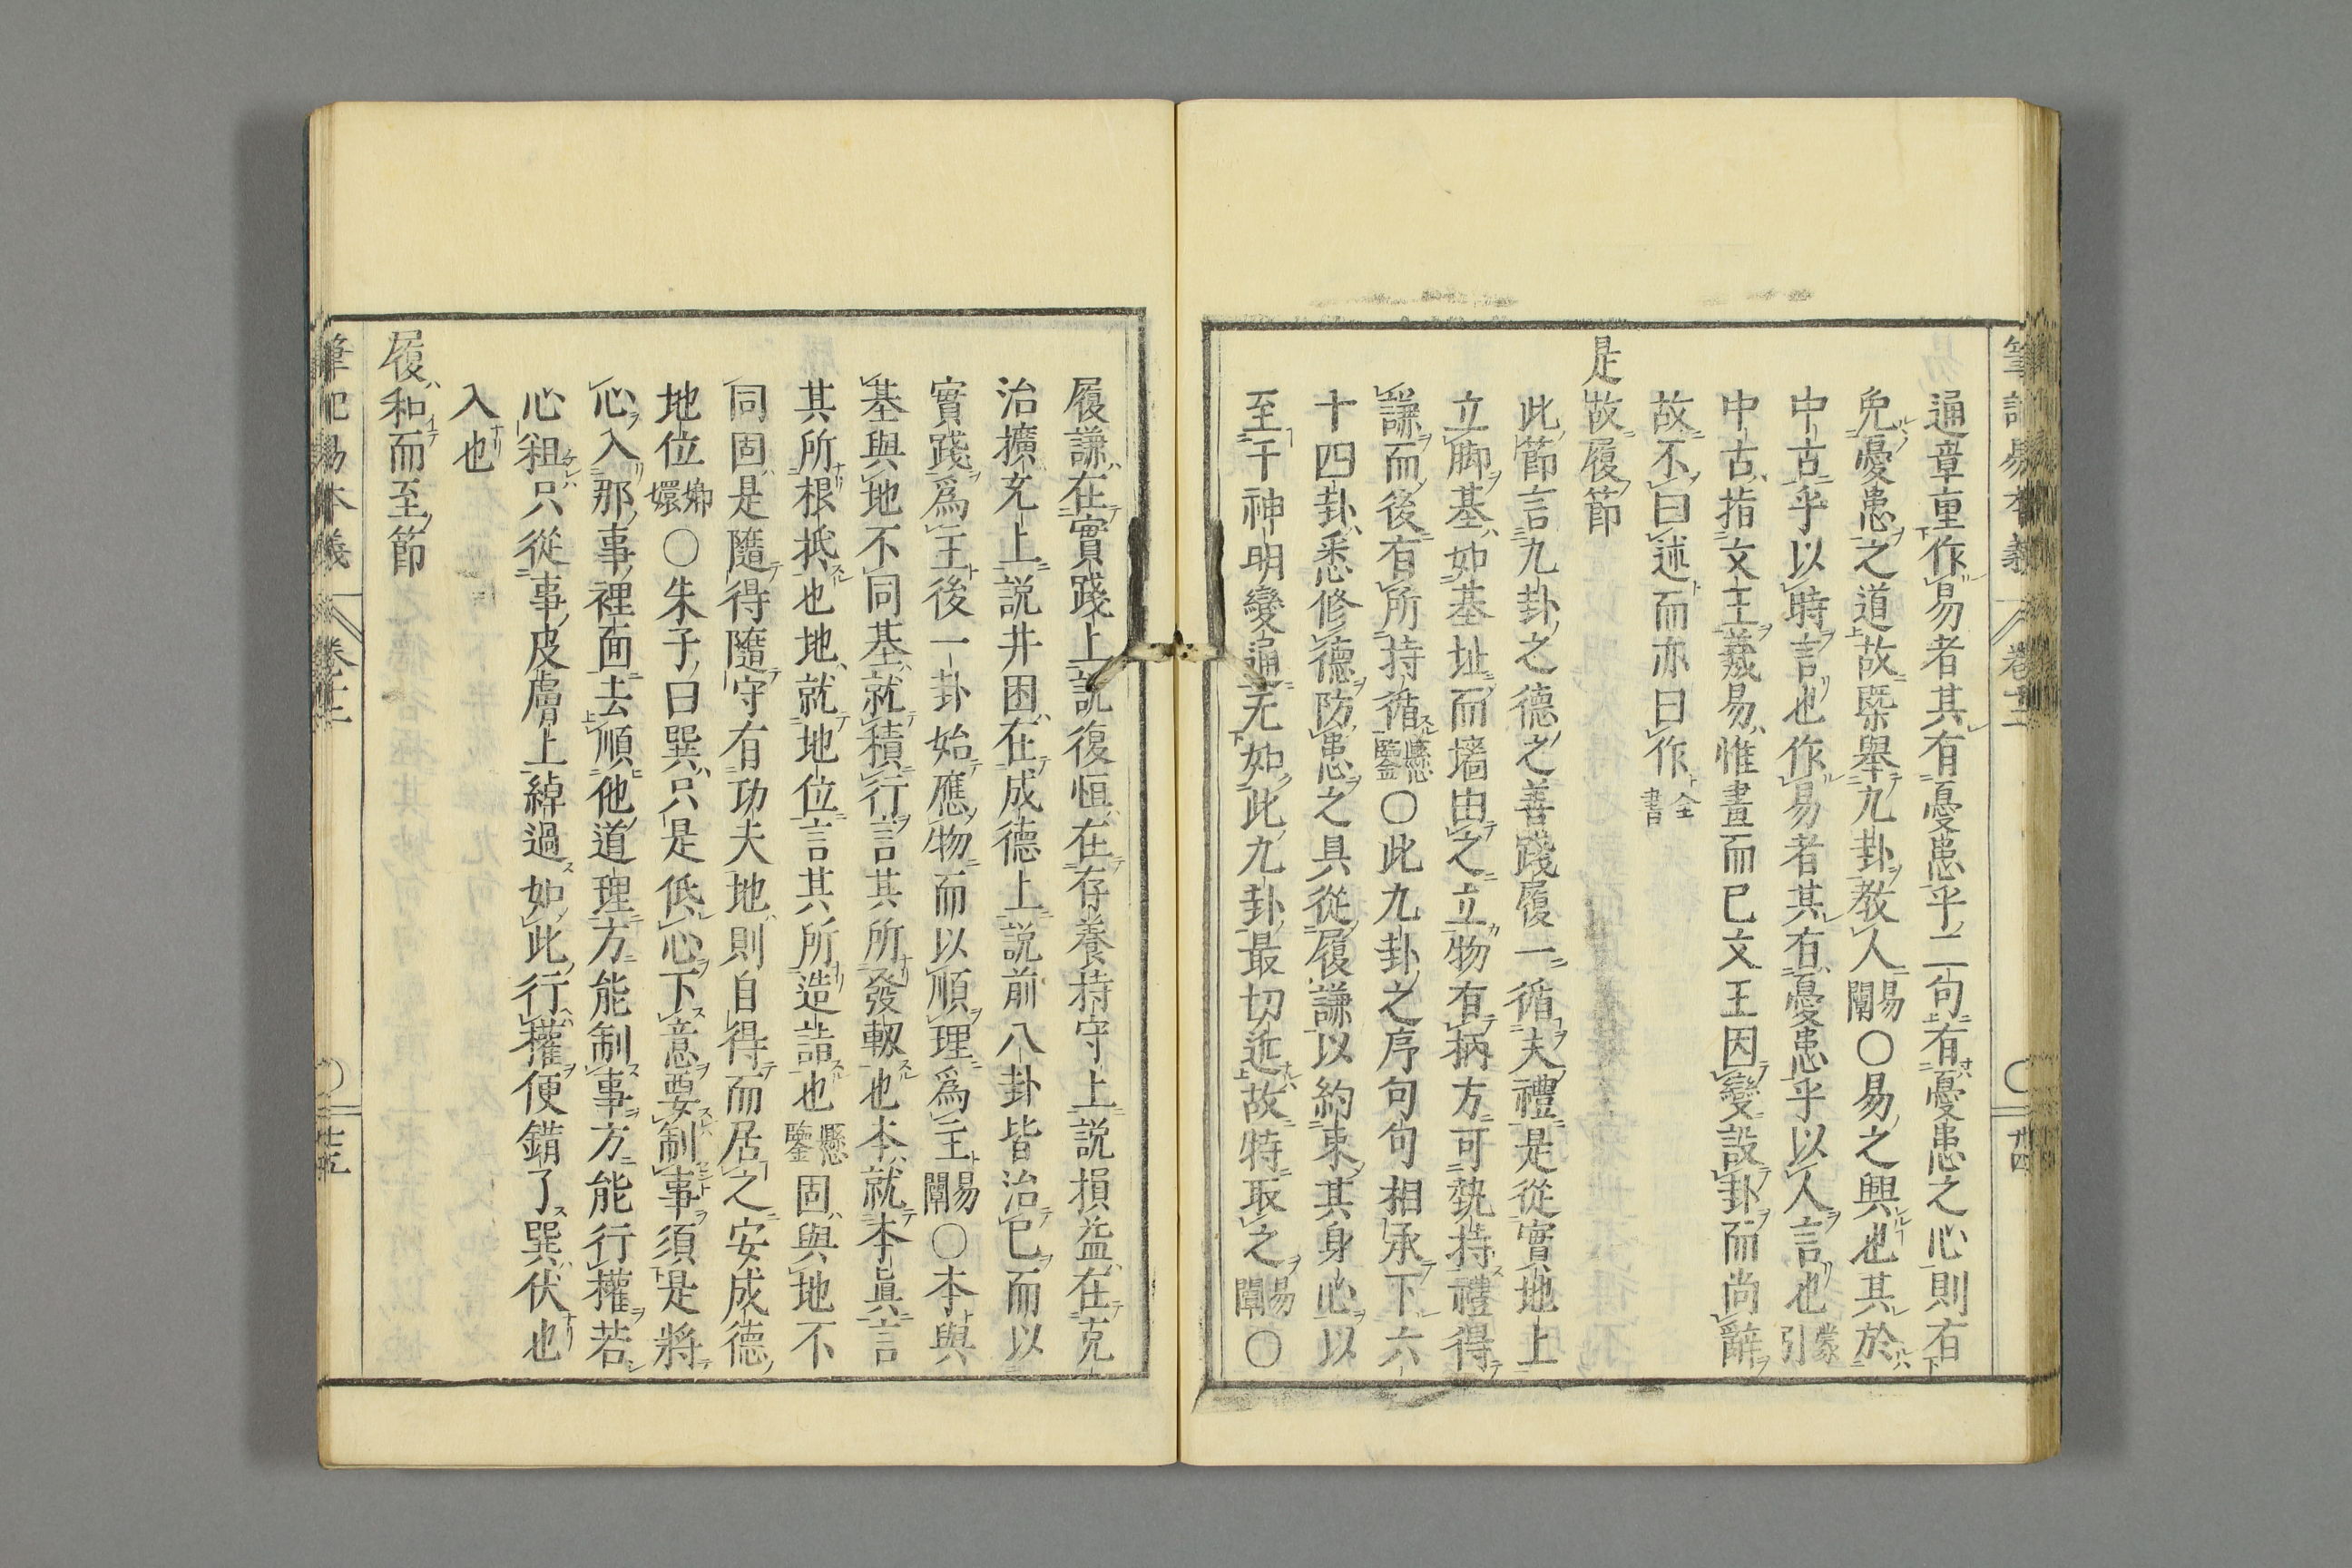 筆記易本義 卷十二 〇 廿四
通章重作易者其有憂患乎二句有憂患之心則有
免憂患之道故歷舉九卦教人易闡〇易之興也其於
中古乎以時言也作易者其有憂患乎以人言也蒙引
中古指文王羲易惟畫而已文王因變設卦而尚辭
故不曰述而亦曰作全書
是故履節
此節言九卦之德之善踐履一循夫禮是從實地上
立脚基如基址而墻由之立物有柄方可執持禮得
謙而後有所持循懸鑒〇此九卦之序句句相承下六
十四卦悉修德防患之具從履謙以約束其身心以
至于神明變通无如此九卦最切近故特取之易闡〇
履謙在實踐上説復恒在存養持守上説損益在克
治擴充上説井困在成德上説前八卦皆治己而以
實踐爲主後一卦始應物而以順理爲主易闡〇本與
基與地不同基就積行言其所發軔也本就本眞言
其所根抵也地就地位言其所造詣也懸鑒固與地不
同固是隨得隨守有功夫地則自得而居之安成德
地位嫏嬛〇朱子曰巽只是低心下意要制事須是將
心入那事裡面去順他道理方能制事方能行權若
心粗只從事皮膚上綽過如此行權便錯了巽伏也
入也
履和而至節
筆記易本義 卷十二 〇 廿五